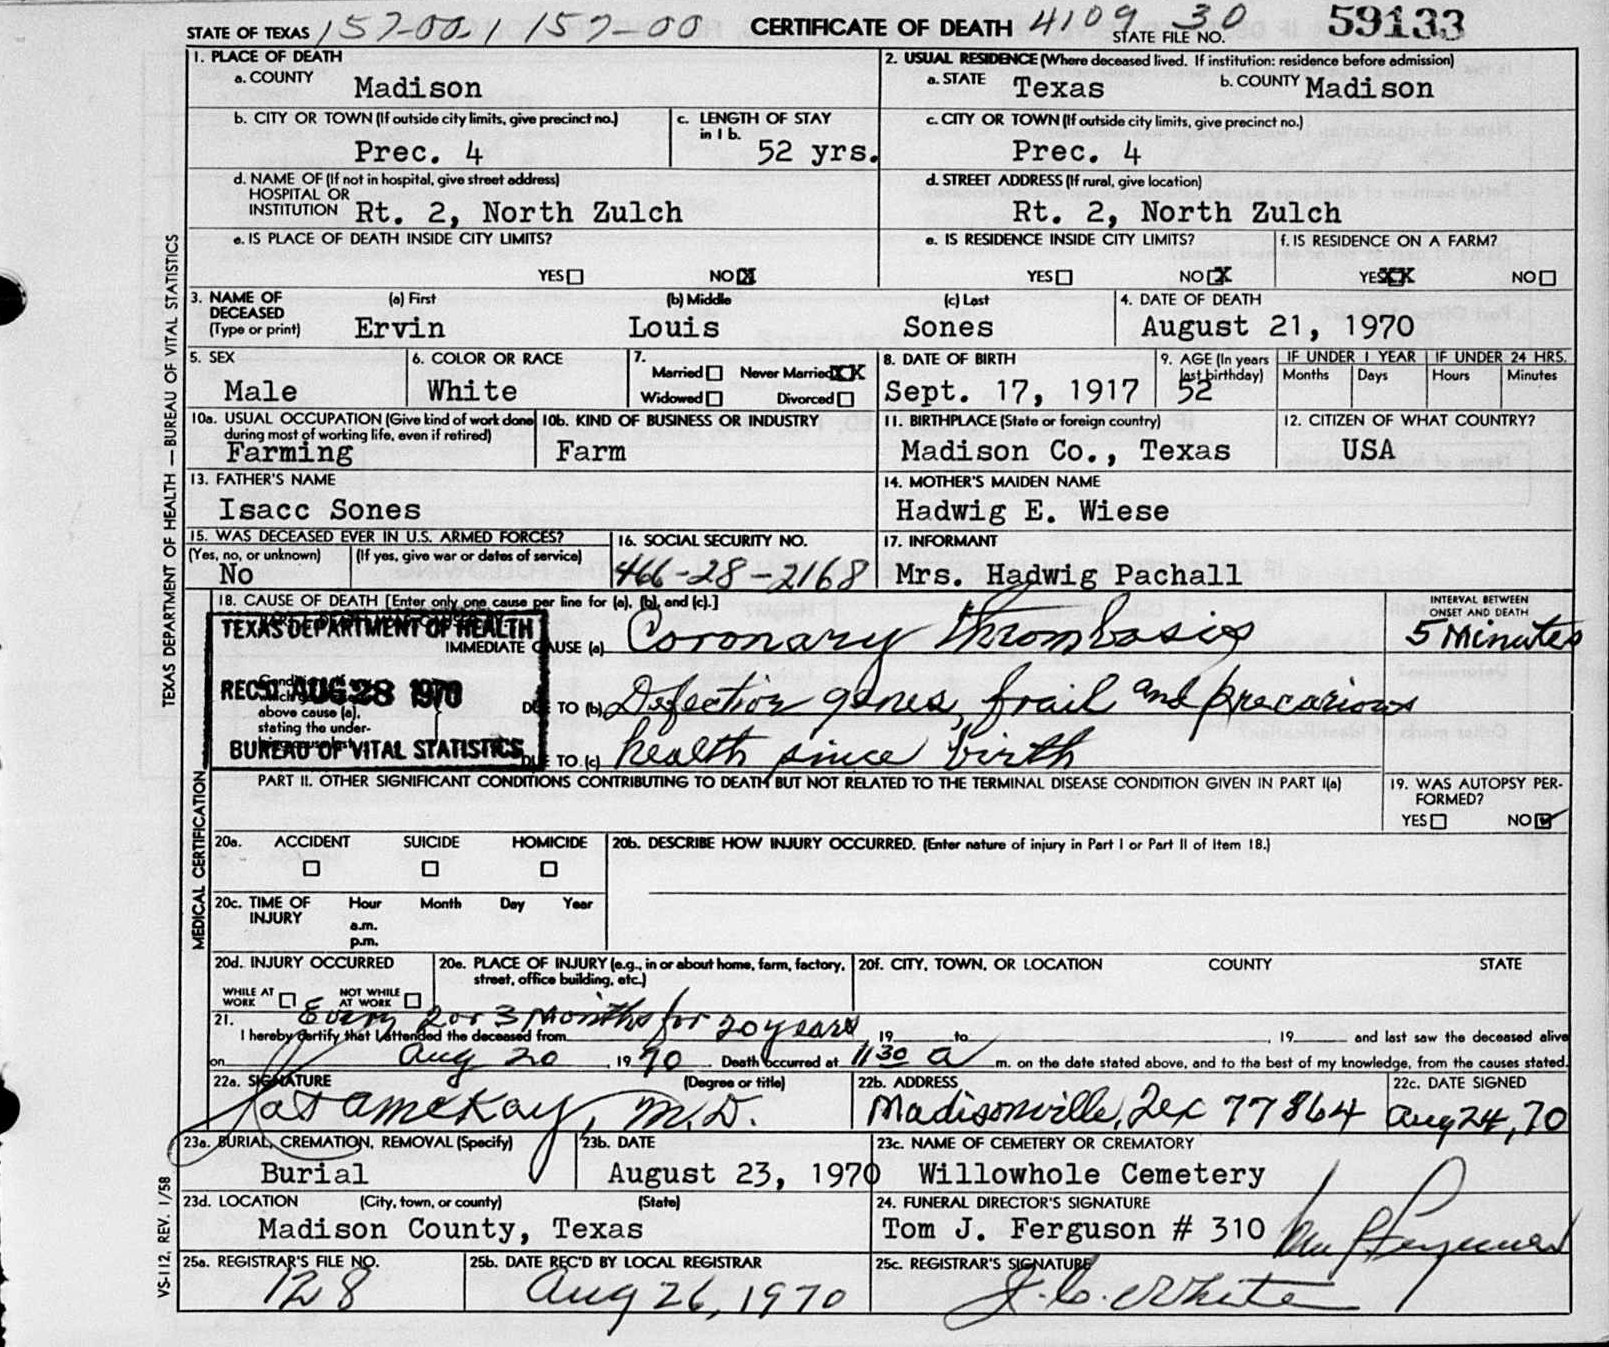 STATE OF TEXAS 157-00.1 157-00 CERTIFICATE OF DEATH 4109 30 STATE FILE NO. 59133
1. PLACE OF DEATH
a. COUNTY Madison
2. USUAL RESIDENCE (Where deceased lived. If institution: residence before admission)
a. STATE Texas b. COUNTY Madison
b. CITY OR TOWN (If outside city limits, give precinct no.)
Prec. 4
c. LENGTH OF STAY in 1 b.
52 yrs.
c. CITY OR TOWN (If outside city limits, give precinct no.)
Prec. 4
d. NAME OF (If not in hospital, give street address)
HOSPITAL OR
INSTITUTION Rt. 2, North Zulch
d. STREET ADDRESS (If rural, give location)
Rt. 2, North Zulch
e. IS PLACE OF DEATH INSIDE CITY LIMITS?
YES NO X
e. IS RESIDENCE INSIDE CITY LIMITS?
YES NO X
f. IS RESIDENCE ON A FARM?
YES XX NO
3. NAME OF DECEASED (Type or print)
(a) First Ervin
(b) Middle Louis
(c) Last Sones
4. DATE OF DEATH
August 21, 1970
5. SEX
Male
6. COLOR OR RACE
White
7.
Married Never Married XX
Widowed Divorced
8. DATE OF BIRTH
Sept. 17, 1917
9. AGE (In years last birthday)
52
IF UNDER 1 YEAR
Months Days
IF UNDER 24 HRS.
Hours Minutes
10a. USUAL OCCUPATION (Give kind of work done during most of working life, even if retired)
Farming
10b. KIND OF BUSINESS OR INDUSTRY
Farm
11. BIRTHPLACE (State or foreign country)
Madison Co., Texas
12. CITIZEN OF WHAT COUNTRY?
USA
13. FATHER'S NAME
Isacc Sones
14. MOTHER'S MAIDEN NAME
Hadwig E. Wiese
15. WAS DECEASED EVER IN U.S. ARMED FORCES?
(Yes, no, or unknown) (If yes, give war or dates of service)
No
16. SOCIAL SECURITY NO.
466-28-2168
17. INFORMANT
Mrs. Hadwig Pachall
18. CAUSE OF DEATH [Enter only one cause per line for (a), (b), and (c).]
INTERVAL BETWEEN ONSET AND DEATH
TEXAS DEPARTMENT OF HEALTH
REC'D AUG 28 1970
BUREAU OF VITAL STATISTICS
IMMEDIATE CAUSE (a) Coronary thrombosis 5 Minutes
above cause (a),
stating the under-
DUE TO (b) Defective genes, frail and precarious
DUE TO (c) health since birth
PART II. OTHER SIGNIFICANT CONDITIONS CONTRIBUTING TO DEATH BUT NOT RELATED TO THE TERMINAL DISEASE CONDITION GIVEN IN PART I(a)
19. WAS AUTOPSY PERFORMED?
YES NO
20a. ACCIDENT SUICIDE HOMICIDE
20b. DESCRIBE HOW INJURY OCCURRED. (Enter nature of injury in Part I or Part II of Item 18.)
20c. TIME OF INJURY Hour Month Day Year
a.m.
p.m.
20d. INJURY OCCURRED
WHILE AT WORK NOT WHILE AT WORK
20e. PLACE OF INJURY (e.g., in or about home, farm, factory, street, office building, etc.)
20f. CITY, TOWN, OR LOCATION COUNTY STATE
21. Every 2 or 3 Months for 20 years
I hereby certify that I attended the deceased from 19 to , 19 and last saw the deceased alive
on Aug 20 , 1970 Death occurred at 11 30 a m. on the date stated above, and to the best of my knowledge, from the causes stated.
22a. SIGNATURE (Degree or title)
McKay, M.D.
22b. ADDRESS
Madisonville, Tex 77864
22c. DATE SIGNED
Aug 24, 70
23a. BURIAL, CREMATION, REMOVAL (Specify)
Burial
23b. DATE
August 23, 1970
23c. NAME OF CEMETERY OR CREMATORY
Willowhole Cemetery
23d. LOCATION (City, town, or county) (State)
Madison County, Texas
24. FUNERAL DIRECTOR'S SIGNATURE
Tom J. Ferguson # 310
25a. REGISTRAR'S FILE NO.
128
25b. DATE REC'D BY LOCAL REGISTRAR
Aug 26, 1970
25c. REGISTRAR'S SIGNATURE
J. C. White
TEXAS DEPARTMENT OF HEALTH — BUREAU OF VITAL STATISTICS
MEDICAL CERTIFICATION
VS-112, REV. 1/58